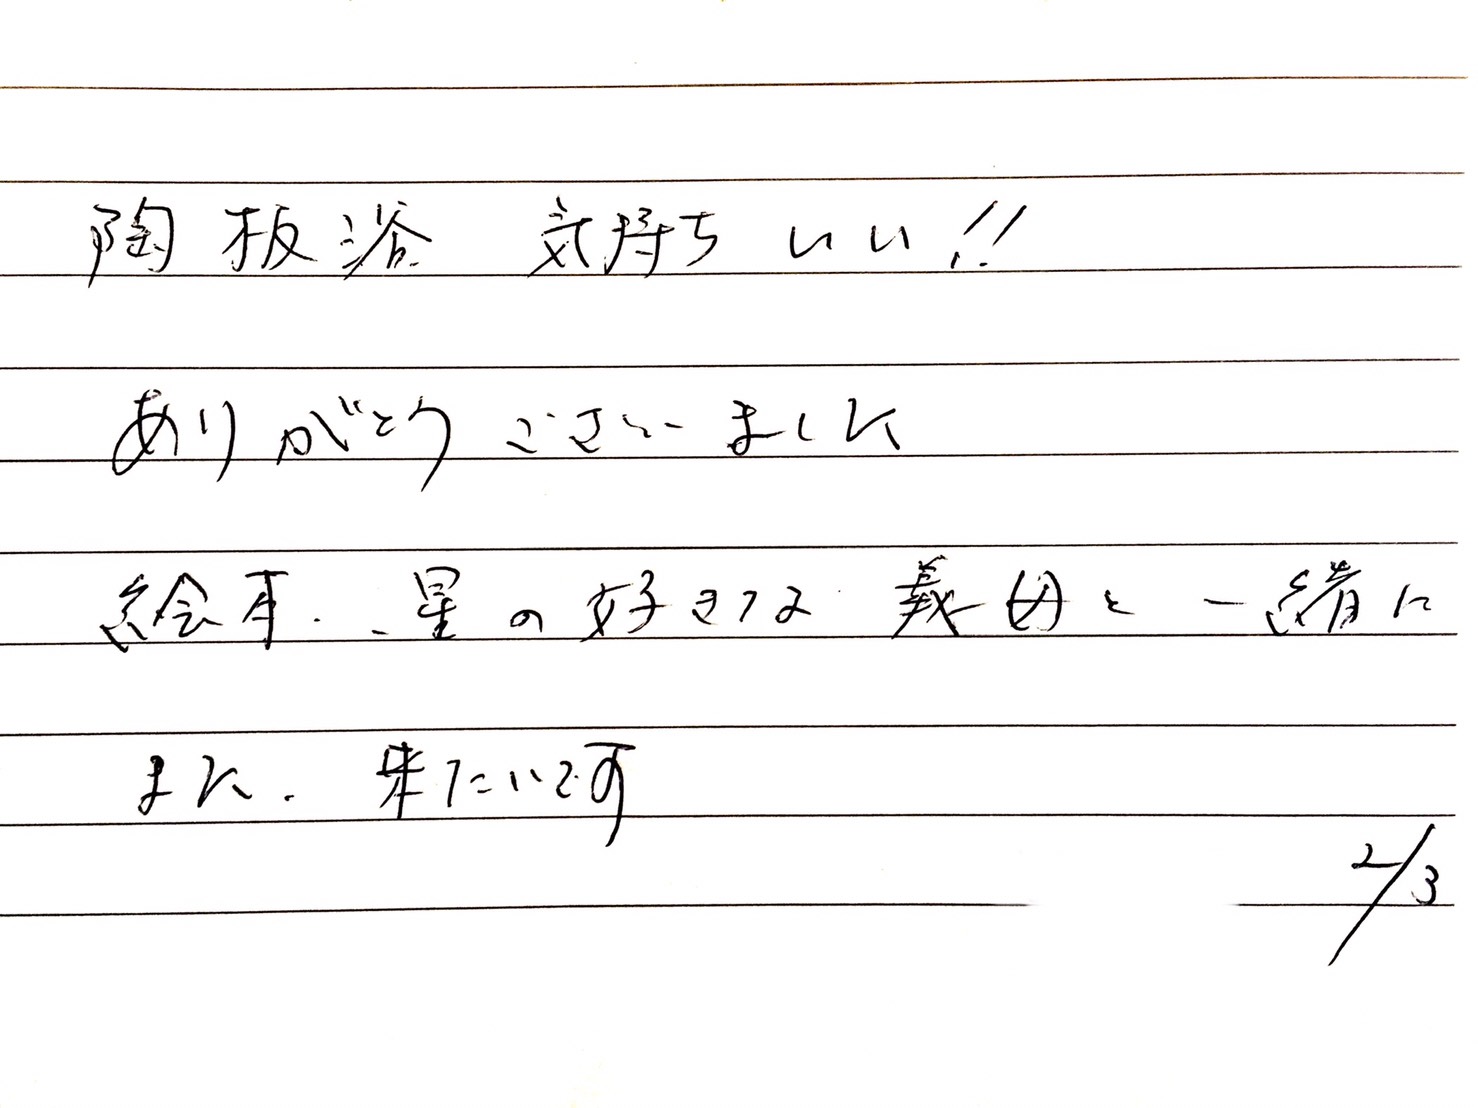 陶板浴 気持ちいい!!
ありがとうございました
絵本、星の好きな 義母と一緒に
また、来たいです
2/3